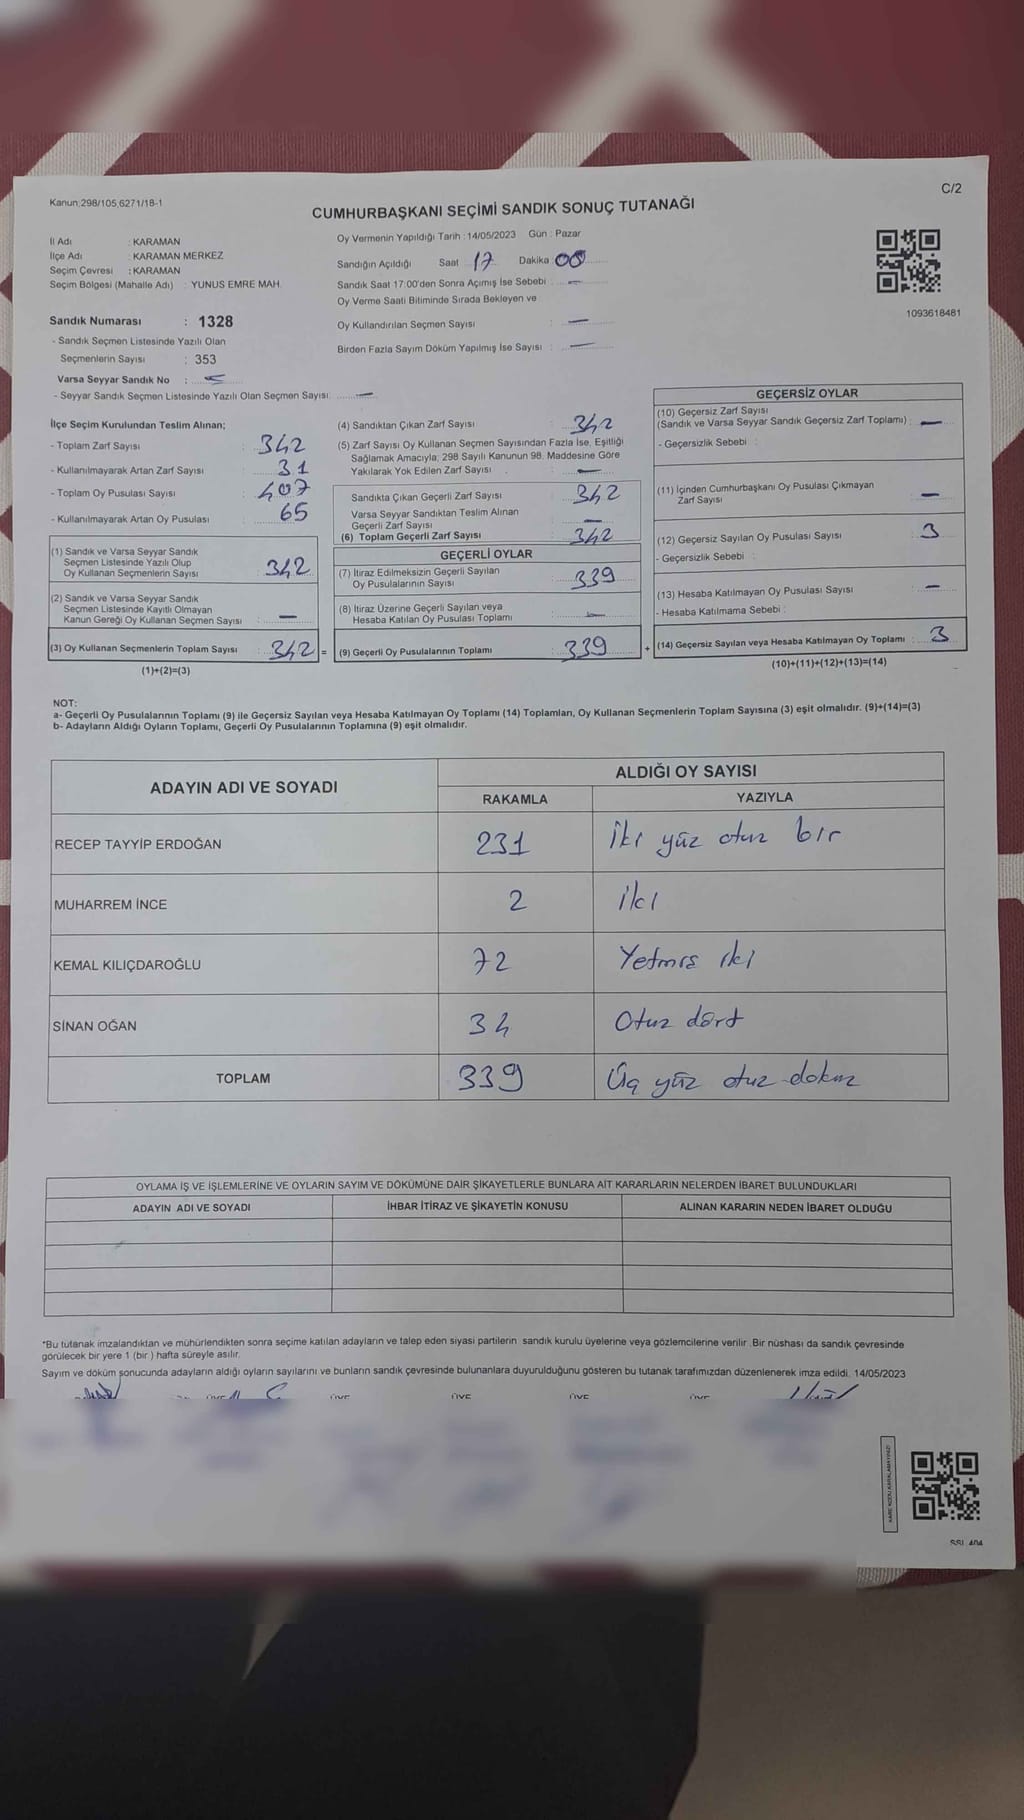 C/2
Kanun;298/105,6271/18-1
CUMHURBAŞKANI SEÇİMİ SANDIK SONUÇ TUTANAĞI
İl Adı : KARAMAN
İlçe Adı : KARAMAN MERKEZ
Seçim Çevresi : KARAMAN
Seçim Bölgesi (Mahalle Adı) : YUNUS EMRE MAH.
Sandık Numarası : 1328
- Sandık Seçmen Listesinde Yazılı Olan
Seçmenlerin Sayısı : 353
Varsa Seyyar Sandık No :
- Seyyar Sandık Seçmen Listesinde Yazılı Olan Seçmen Sayısı: —
Oy Vermenin Yapıldığı Tarih : 14/05/2023 Gün : Pazar
Sandığın Açıldığı Saat 17 Dakika 00
Sandık Saat 17:00'den Sonra Açımış İse Sebebi : —
Oy Verme Saati Bitiminde Sırada Bekleyen ve
Oy Kullandırılan Seçmen Sayısı : —
Birden Fazla Sayım Döküm Yapılmış İse Sayısı : —
1093618481
İlçe Seçim Kurulundan Teslim Alınan;
- Toplam Zarf Sayısı : 342
- Kullanılmayarak Artan Zarf Sayısı : 31
- Toplam Oy Pusulası Sayısı : 407
- Kullanılmayarak Artan Oy Pusulası : 65
(1) Sandık ve Varsa Seyyar Sandık
Seçmen Listesinde Yazılı Olup
Oy Kullanan Seçmenlerin Sayısı : 342
(2) Sandık ve Varsa Seyyar Sandık
Seçmen Listesinde Kayıtlı Olmayan
Kanun Gereği Oy Kullanan Seçmen Sayısı : —
(3) Oy Kullanan Seçmenlerin Toplam Sayısı : 342 =
(1)+(2)=(3)
(4) Sandıktan Çıkan Zarf Sayısı : 342
(5) Zarf Sayısı Oy Kullanan Seçmen Sayısından Fazla İse, Eşitliği
Sağlamak Amacıyla; 298 Sayılı Kanunun 98. Maddesine Göre
Yakılarak Yok Edilen Zarf Sayısı : —
Sandıkta Çıkan Geçerli Zarf Sayısı : 342
Varsa Seyyar Sandıktan Teslim Alınan
Geçerli Zarf Sayısı : —
(6) Toplam Geçerli Zarf Sayısı : 342
GEÇERLİ OYLAR
(7) İtiraz Edilmeksizin Geçerli Sayılan
Oy Pusulalarının Sayısı : 339
(8) İtiraz Üzerine Geçerli Sayılan veya
Hesaba Katılan Oy Pusulası Toplamı : —
(9) Geçerli Oy Pusulalarının Toplamı : 339 +
GEÇERSİZ OYLAR
(10) Geçersiz Zarf Sayısı
(Sandık ve Varsa Seyyar Sandık Geçersiz Zarf Toplamı) : —
- Geçersizlik Sebebi :
(11) İçinden Cumhurbaşkanı Oy Pusulası Çıkmayan
Zarf Sayısı : —
(12) Geçersiz Sayılan Oy Pusulası Sayısı : 3
- Geçersizlik Sebebi :
(13) Hesaba Katılmayan Oy Pusulası Sayısı : —
- Hesaba Katılmama Sebebi :
(14) Geçersiz Sayılan veya Hesaba Katılmayan Oy Toplamı : 3
(10)+(11)+(12)+(13)=(14)
NOT:
a- Geçerli Oy Pusulalarının Toplamı (9) ile Geçersiz Sayılan veya Hesaba Katılmayan Oy Toplamı (14) Toplamları, Oy Kullanan Seçmenlerin Toplam Sayısına (3) eşit olmalıdır. (9)+(14)=(3)
b- Adayların Aldığı Oyların Toplamı, Geçerli Oy Pusulalarının Toplamına (9) eşit olmalıdır.
ADAYIN ADI VE SOYADI
ALDIĞI OY SAYISI
RAKAMLA YAZIYLA
RECEP TAYYİP ERDOĞAN 231 İki yüz otuz bir
MUHARREM İNCE 2 iki
KEMAL KILIÇDAROĞLU 72 Yetmiş iki
SİNAN OĞAN 34 Otuz dört
TOPLAM 339 Üç yüz otuz dokuz
OYLAMA İŞ VE İŞLEMLERİNE VE OYLARIN SAYIM VE DÖKÜMÜNE DAİR ŞİKAYETLERLE BUNLARA AİT KARARLARIN NELERDEN İBARET BULUNDUKLARI
ADAYIN ADI VE SOYADI İHBAR İTİRAZ VE ŞİKAYETİN KONUSU ALINAN KARARIN NEDEN İBARET OLDUĞU
*Bu tutanak imzalandıktan ve mühürlendikten sonra seçime katılan adayların ve talep eden siyasi partilerin sandık kurulu üyelerine veya gözlemcilerine verilir. Bir nüshası da sandık çevresinde
görülecek bir yere 1 (bir ) hafta süreyle asılır.
Sayım ve döküm sonucunda adayların aldığı oyların sayılarını ve bunların sandık çevresinde bulunanlara duyurulduğunu gösteren bu tutanak tarafımızdan düzenlenerek imza edildi. 14/05/2023
ÜYE ÜYE ÜYE ÜYE ÜYE